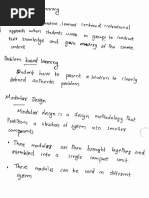 learning
learner centered instructional
approach when students work in groups to construct
Not knowledge and gain mastery of the course
content
Problem based learning
Student have to present a solution to clearly
defined authentic problem.
Modular Design
Modular design is a design methodology that
a structure of system into smaller
• These modules are then brought together and
assembled into a single compact unit.
• These modules can be used in different
system